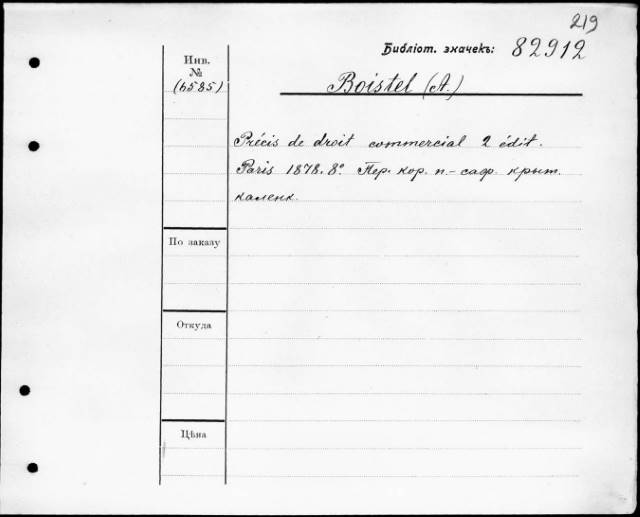 219
Библiот. значекъ: 82912
Инв.
№
(6585)
Boistel (A.)
Précis de droit commercial 2 édit.
Paris 1878. 8º. Пер. кор. п.-саф. крыт.
каленк.
По заказу
Откуда
Цѣна